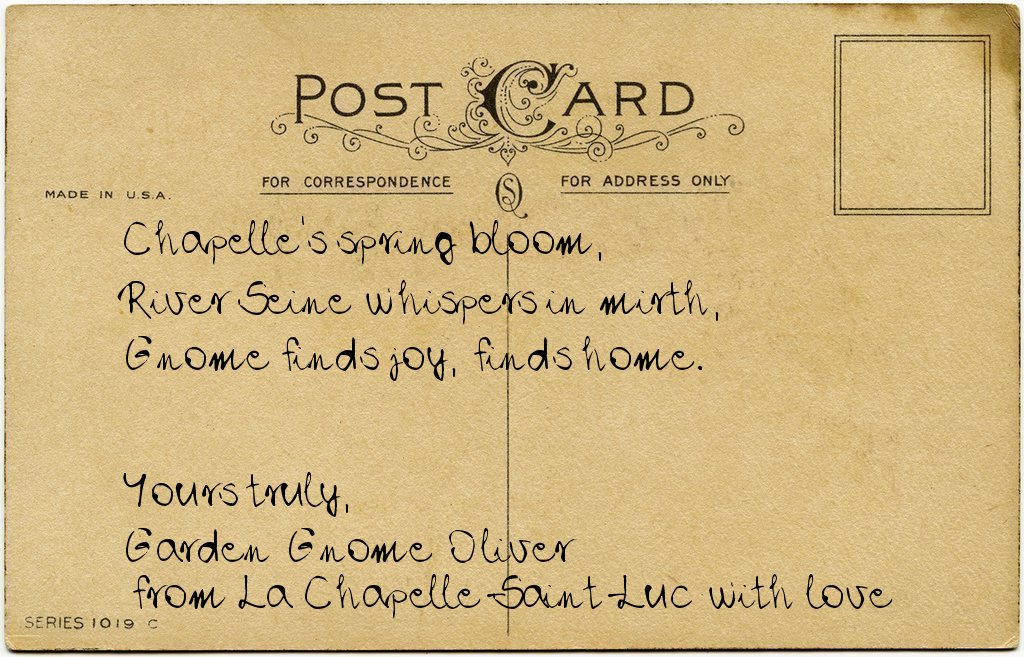 POST CARD
FOR CORRESPONDENCE
FOR ADDRESS ONLY
MADE IN U.S.A.
Chapelle's spring bloom,
River Seine whispers in mirth,
Gnome finds joy, finds home.
Yours truly,
Garden Gnome Oliver
from La Chapelle-Saint-Luc with love
SERIES 1019 C